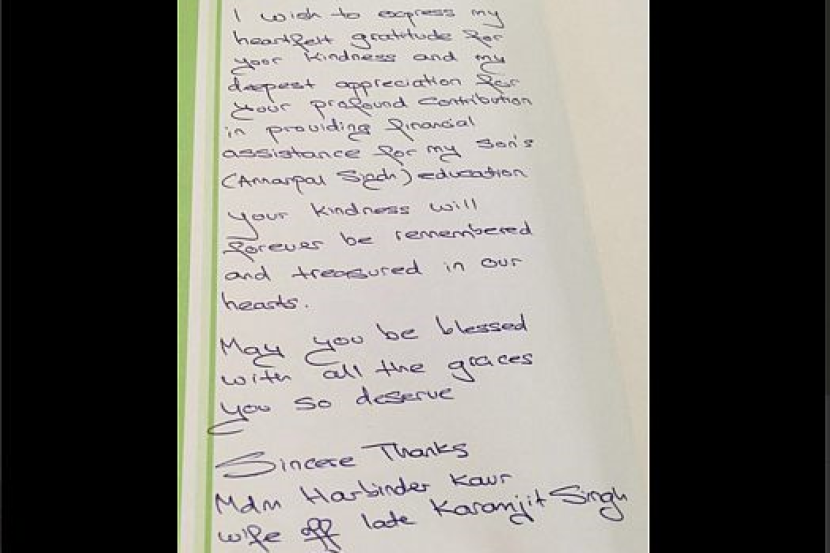 I wish to express my
heartfelt gratitude for
your kindness and my
deepest appreciation for
your profound contribution
in providing financial
assistance for my son's
(Amarpal Singh) education
your kindness will
forever be remembered
and treasured in our
hearts.
May you be blessed
with all the graces
you so deserve
Sincere Thanks
Mdm Harbinder Kaur
wife off late Karamjit Singh